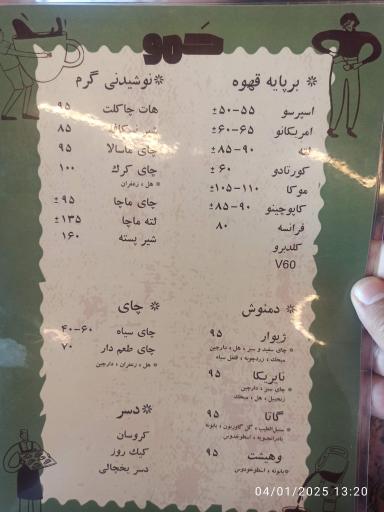 حمو
* برپایه قهوه
اسپرسو ۵۰-۵۵ ±
امریکانو ۶۰-۶۵ ±
لته ۸۵-۹۰ ±
کورتادو ۶۰ ±
موکا ۱۰۵-۱۱۰ ±
کاپوچینو ۸۵-۹۰ ±
فرانسه ۸۰
کلدبرو
V60
* نوشیدنی گرم
هات چاکلت ۹۵
شیر نسکافه ۸۵
چای ماسالا ۹۵
چای کرک ۱۰۰
* هل ، زعفران
چای ماچا ۹۵ ±
لته ماچا ۱۳۵ ±
شیر پسته ۱۶۰
* دمنوش
ژیوار ۹۵
* چای سفید و سبز ، هل ، دارچین
میخک ، زردچوبه ، فلفل سیاه
تایریکا ۹۵
* چای سبز ، دارچین
زنجبیل ، هل ، میخک
گاتا ۹۵
* سنبل‌الطیب ، گل گاوزبون ، بابونه
بادرنجبویه ، اسطوخدوس
وهیشت ۹۵
* بابونه ، اسطوخودوس
* چای
چای سیاه ۴۰-۶۰
چای طعم دار ۷۰
* هل ، زعفران ، دارچین
* دسر
کروسان
کیک روز
دسر یخچالی
04/01/2025 13:20